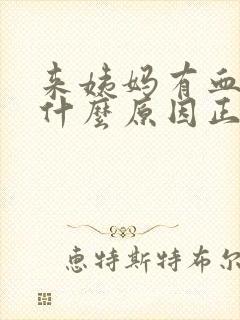 来姨妈有血
什麼原因正
惠特斯特布尔